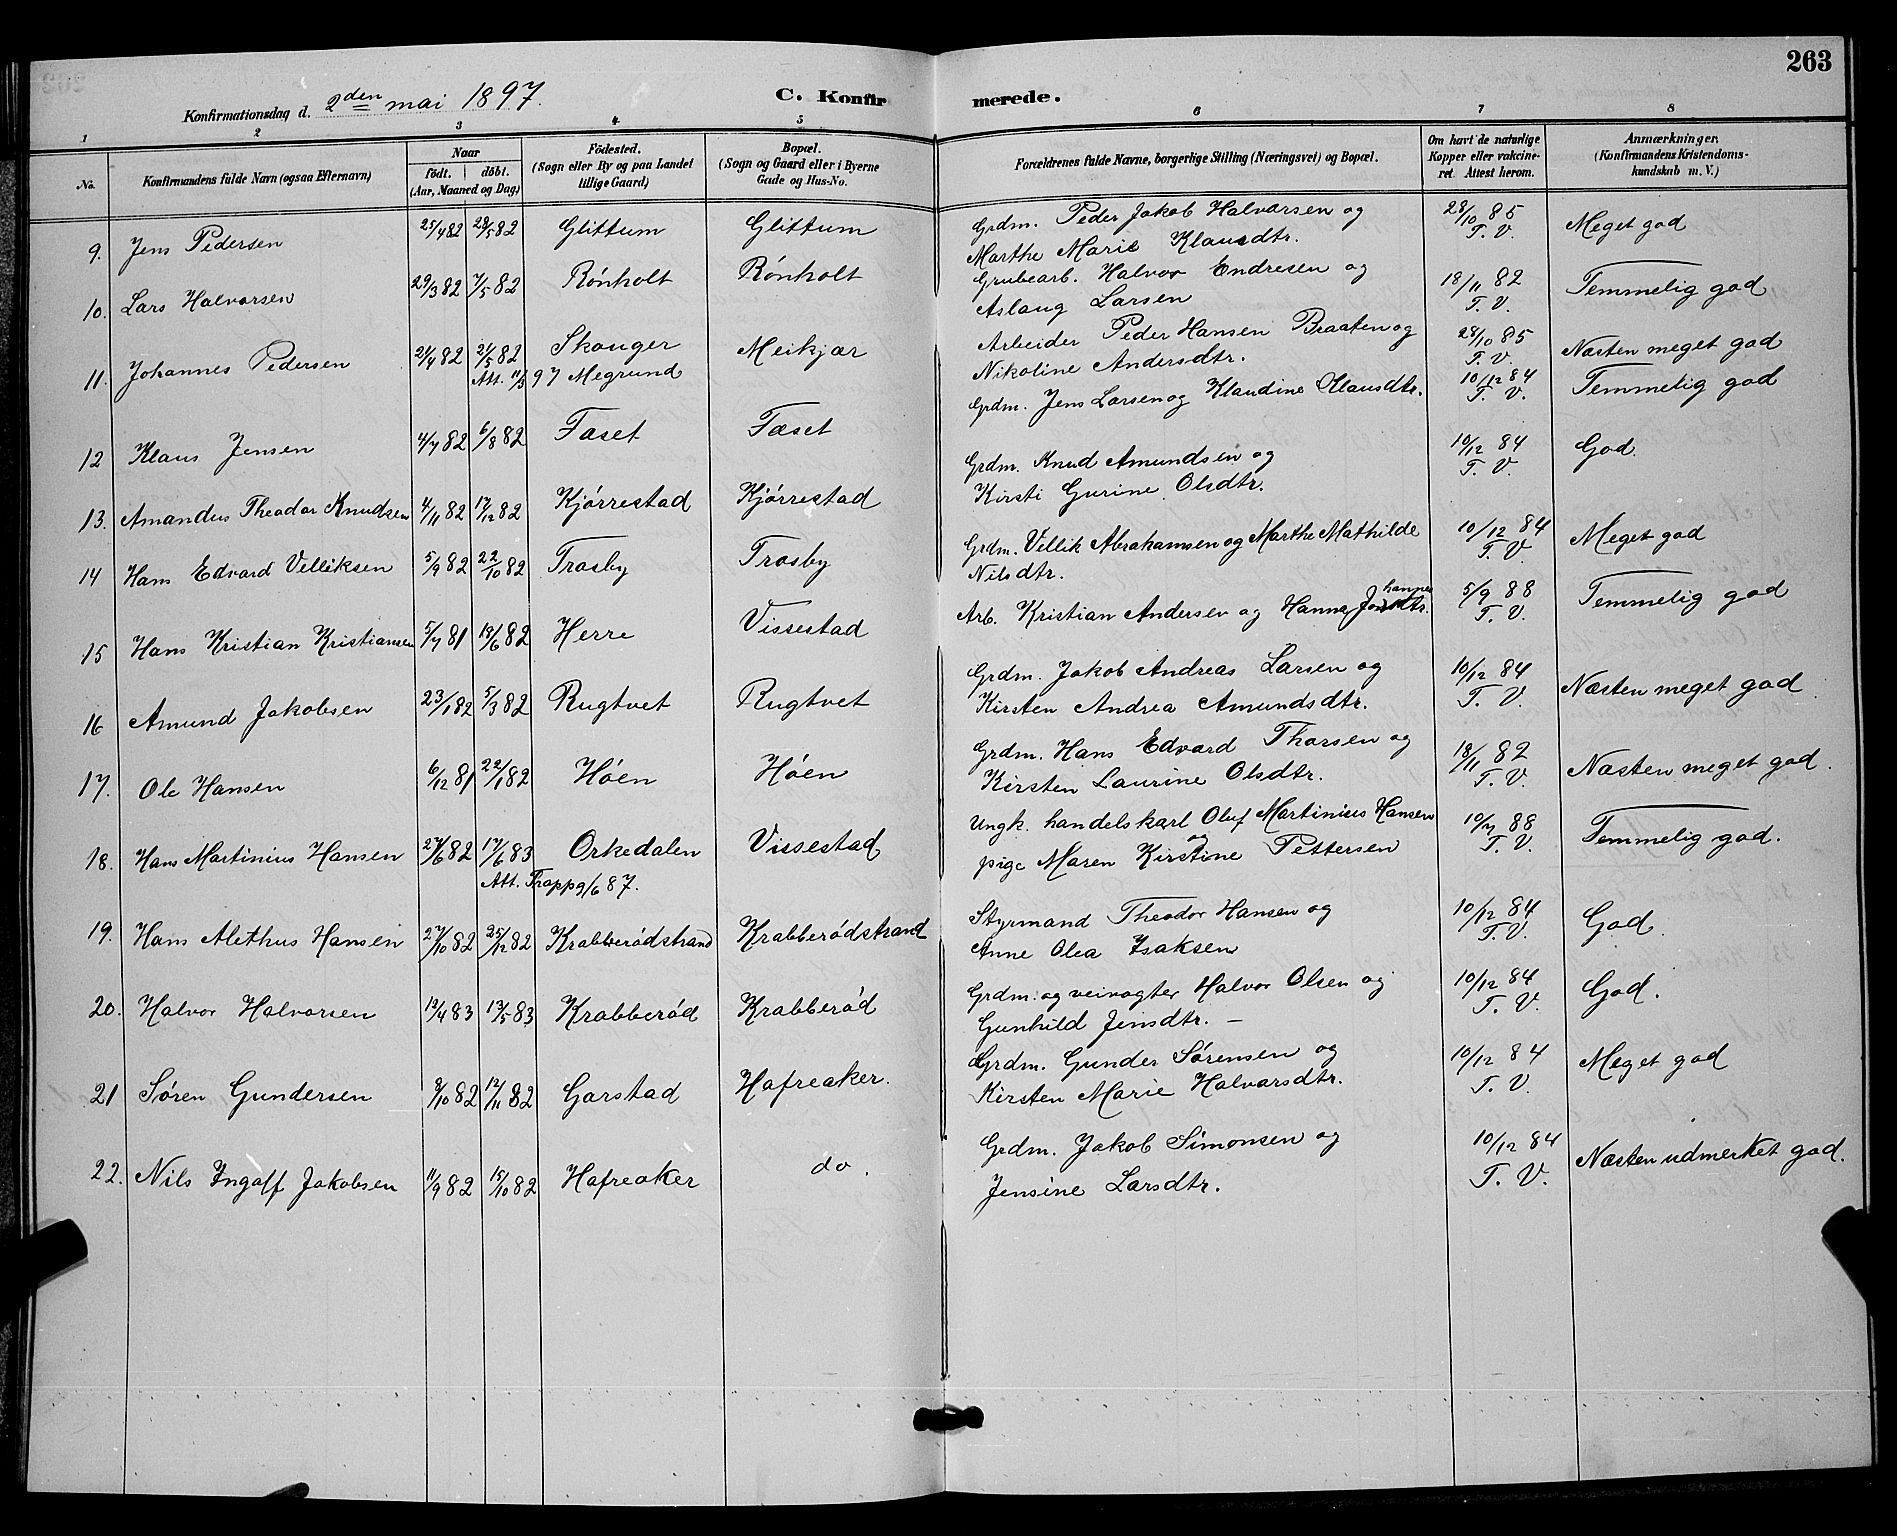 263
Konfirmationsdag d. 2den mai 1897.
C. Konfirmerede.
1 2 3 4 5 6 7 8
No. Konfirmandens fulde Navn (ogsaa Efternavn) Naar födt. döbt. (Aar, Maaned og Dag) Födested. (Sogn eller By og paa Landet tillige Gaard) Bopæl. (Sogn og Gaard eller i Byerne Gade og Hus-No. Forældrenes fulde Navne, borgerlige Stilling (Næringsvei) og Bopæl. Om havt de naturlige Kopper eller vakcineret. Attest herom. Anmærkninger. (Konfirmandens Kristendomskundskab m. V.)
9. Jens Pedersen 25/4 82 28/5 82 Glittum Glittum Grdm. Peder Jakob Halvorsen og Marthe Marie Klausdtr. 28/10 85 T. V. Meget god
10. Lars Halvorsen 29/3 82 7/5 82 Rónholt Rónholt Grubearb. Halvor Endresen og Aslaug Larsen 18/11 82 T. V. Temmelig god
11. Johannes Pedersen 21/4 82 21/5 82 Skouger Meikjær Arbeider Peder Hansen Braaten og Nikoline Andersdtr. 28/10 85 T. V. Næsten meget god
Att. 11/3 97 Megrund
12 Klaus Jensen 4/7 82 6/8 82 Faset Fæset Grdm. Jens Larsen og Klaudine Klausdtr. 10/12 84 T. V. Temmelig god
13. Amandus Theodor Knudsen 4/11 82 17/12 82 Kjörrestad Kjörrestad Grdm. Knud Amundsen og Kirsti Gurine Olsdtr. 10/12 84 T. V. God.
14 Hans Edvard Velliksen 5/9 82 22/10 82 Trosby Trosby Grdm. Vellik Abrahamsen og Marthe Mathilde Nilsdtr. 10/12 84 T. V. Meget god
15 Hans Kristian Kristiansen 5/7 81 18/6 82 Herre Vissestad Arb. Kristian Andersen og Hanna Johannesdtr. 5/9 88 T. V. Temmelig god
16 Amund Jakobsen 23/1 82 5/3 82 Rugtvet Rugtvet Grdm. Jakob Andreas Larsen og Kirsten Andrea Amundsdtr. 10/12 84 T. V. Næsten meget god
17. Ole Hansen 6/12 81 22/1 82 Höen Höen Grdm. Hans Edvard Thorsen og Kirsten Laurine Olsdtr. 18/11 82 T. V. Næsten meget god.
18. Hans Martinius Hansen 27/6 82 17/6 83 Orkedalen Vissestad Ungk. handelskarl Oluf Martinius Hansen og pige Maren Kirstine Pettersen 10/7 88 T. V. Temmelig god.
Att. Trapp 9/6 87.
19. Hans Alethus Hansen 27/10 82 25/12 82 Krabberödstrand Krabberödstrand Styrmand Theodor Hansen og Anne Olea Isaksen 10/12 84 T. V. God.
20. Halvor Halvorsen 13/4 83 13/5 83 Krabberöd Krabberöd Grdm. og veivogter Halvor Olsen og Gunhild Jensdtr. — 10/12 84 T. V. God.
21 Sören Gundersen 9/10 82 12/11 82 Garstad Hafreaker. Grdm. Gunder Sörensen og Kirsten Marie Halvorsdtr. 10/12 84 T. V. Meget god
22. Nils Ingolf Jakobsen 11/9 82 15/10 82 Hafreaker do. Grdm. Jakob Simonsen og Jensine Larsdtr. 10/12 84 T. V. Næsten udmerket god.